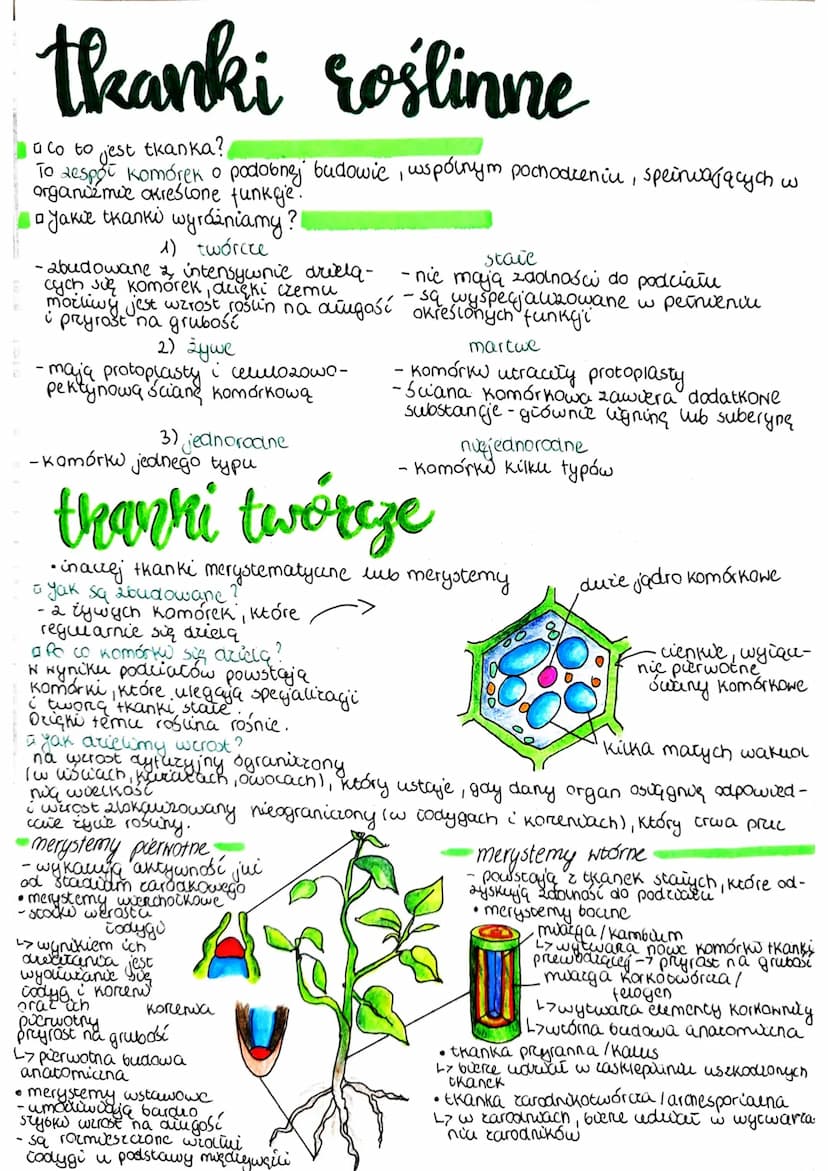 tkanki roślinne
Co to jest tkanka?
To zespół komórek o podobnej budowie, wspólnym pochodzeniu, spełniających w
organizmie określone funkcje.
Jakie tkanki wyróżniamy?
1) twórcze
- zbudowane z intensywnie dzielą-
cych się komórek, dzięki czemu
możliwy jest wzrost roślin na długość
i przyrost na grubość
stałe
- nie mają zdolności do podziału
- są wyspecjalizowane w pełnieniu
określonych funkcji
2) żywe
- mają protoplasty i celulozowo-
pektynową ścianę komórkową
martwe
- komórki utraciły protoplasty
- ściana komórkowa zawiera dodatkowe
substancje - głównie ligninę lub suberynę
3) jednorodne
- komórki jednego typu
niejednorodne
- komórki kilku typów
tkanki twórcze
• inaczej tkanki merystematyczne lub merystemy
Jak są zbudowane?
- z żywych komórek, które
regularnie się dzielą
Po co komórki się dzielą?
W wyniku podziałów powstają
komórki, które ulegają specjalizacji
i tworzą tkanki stałe.
Dzięki temu roślina rośnie.
duże jądro komórkowe
cienkie, wyłącz-
nie pierwotne
ściany komórkowe
kilka małych wakuol
Jak dzielimy wzrost?
na wzrost dyfuzyjny ograniczony
(w liściach, kwiatach, owocach), który ustaje, gdy dany organ osiągnie odpowied-
nią wielkość
i wzrost zlokalizowany nieograniczony (w łodygach i korzeniach), który trwa przez
całe życie rośliny.
merystemy pierwotne
- wykazują aktywność już
od stadium zarodkowego
• merystemy wierzchołkowe
- stożki wzrostu
łodygi
korzenia
↳ wynikiem ich
działania jest
wydłużanie się
łodyg i korzeni
oraz ich
pierwotny
przyrost na grubość
↳ pierwotna budowa
anatomiczna
• merystemy wstawowe
- umożliwiają bardzo
szybki wzrost na długość
- są rozmieszczone wzdłuż
łodygi u podstawy międzywęźli
merystemy wtórne
- powstają z tkanek stałych, które od-
zyskują zdolność do podziału
• merystemy boczne
miazga/kambium
↳ wytwarza nowe komórki tkanki
przewodzącej → przyrost na grubość
miazga korkotwórcza/
felogen
↳ wytwarza elementy korkowicy
↳ wtórna budowa anatomiczna
• tkanka przyranna/kalus
↳ bierze udział w zasklepianiu uszkodzonych
tkanek
• tkanka zarodnikotwórcza/archesporialna
↳ w zarodniach, bierze udział w wytwarza-
niu zarodników